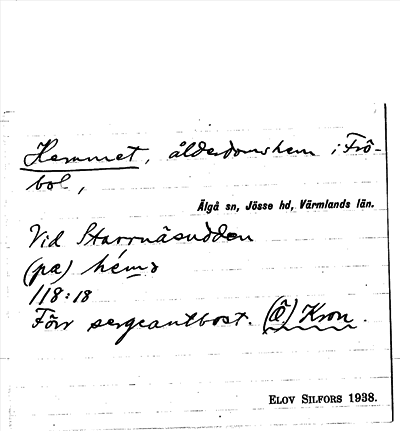 Hemmet, ålderdomshem i Frö-
bol,
Älgå sn, Jösse hd, Värmlands län.
Vid Starrnäsudden
(pa) hém
118:18
Förr sergeantbost. (Ö) Kron.
ELOV SILFORS 1938.